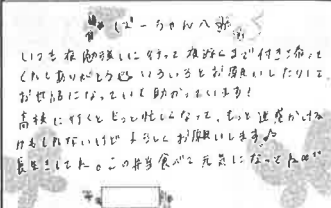 ばーちゃんへ
いつも夜勉強しに行って夜遅くまで付き合って
くれてありがとう いろいろとお願いしたりして
お世話になっていて助かっています!
高校に行くともっと忙しくなって、もっと迷惑かける
かもしれないけどよろしくお願いします♪
長生きしてね。この弁当食べて元気になってね